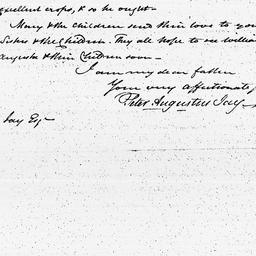 excellent crops, & so he ought—
Mary & the children send their love to you
Sisters & the Children. They all hope to see William
Augusta & their Children soon—
I am my dear father
Your very affectionate
Peter Augustus Jay—
Jay Esq